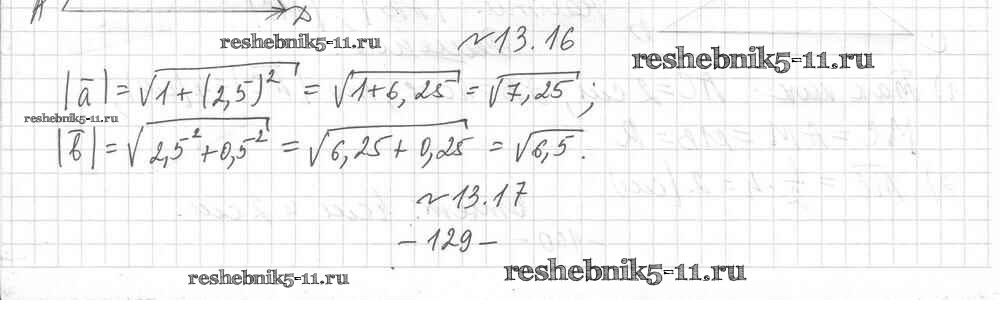 A D
reshebnik5-11.ru
№13.16
reshebnik5-11.ru
|a̅| = √1+(2,5)² = √1+6,25 = √7,25;
reshebnik5-11.ru
|b̅| = √2,5²+0,5² = √6,25+0,25 = √6,5.
№13.17
-129-
reshebnik5-11.ru
reshebnik5-11.ru